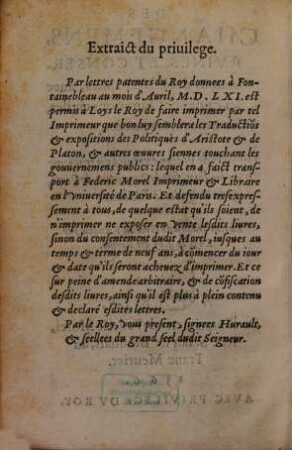 Extraict du priuilege.
Par lettres patentes du Roy donnees à Fon-
tainebleau au mois d'Auril, M. D. LXI. est
permis à Loys le Roy de faire imprimer par tel
Imprimeur que bon luy semblera les Traductiõs
& expositions des Politiques d'Aristote & de
Platon, & autres œuures siennes touchant les
gouuernemens publics: lequel en a faict trans-
port à Federic Morel Imprimeur & Libraire
en l'vniuersité de Paris. Et defendu tresexpres-
sement à tous, de quelque estat qu'ils soient, de
n'imprimer ne exposer en vente lesdits liures,
sinon du consentement dudit Morel, iusques au
temps & terme de neuf ans, à cōmencer du iour
& date qu'ils seront acheuez d'imprimer. Et ce
sur peine d'amende arbitraire, & de cõfiscation
desdits liures, ainsi qu'il est plus à plein contenu
& declaré esdites lettres.
Par le Roy, vous present, signees Hurault,
& seellees du grand seel dudit Seigneur.